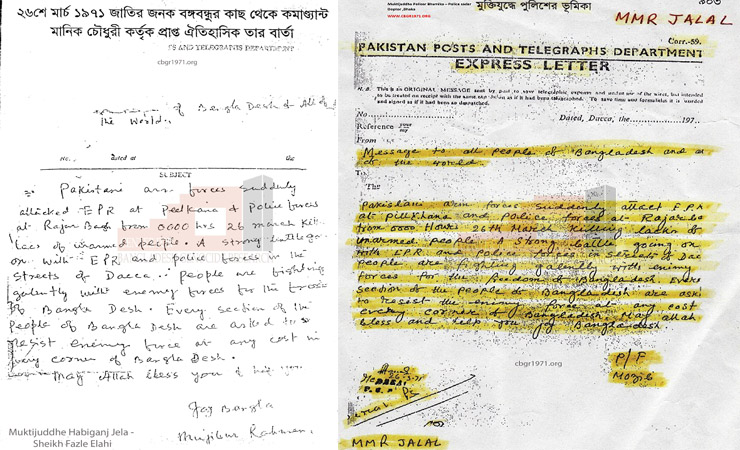 ২৬শে মার্চ ১৯৭১ জাতির জনক বঙ্গবন্ধুর কাছ থেকে কমাণ্ড্যান্ট
মানিক চৌধুরী কর্তৃক প্রাপ্ত ঐতিহাসিক তার বার্তা
TS AND TELEGRAPHS DEPARTMENT
cbgr1971.org
of Bangla Desh & All of
the World.
No. dated at the
SUBJECT
Pakistani arm forces suddenly
attacked EPR at Peelkana & Police forces
at Rajar Bagh from 0000 hrs 26 march
lacs of unarmed people. A strong battle
on with EPR and police forces in the
Streets of Dacca. people are fighting
gallently with enemy forces for the
of Bangla Desh. Every section of the
People of Bangla Desh are asked to
Resist enemy force at any cost in
every corner of Bangla Desh.
May Allah bless you &
Joy Bangla
Mujibur Rahman.
Muktijuddhe Habiganj Jela -
Sheikh Fazle Elahi
Muktijuddhe Policer Bhumika - Police under
WWW.CBGR1971.ORG
মুক্তিযুদ্ধে পুলিশের ভূমিকা
MMR JALAL
Corr.-59.
PAKISTAN POSTS AND TELEGRAPHS DEPARTMENT
EXPRESS LETTER
N. B. This is an ORIGINAL MESSAGE sent by post to save telegraphic expense and undue use of the wires, but intended
to be treated on receipt with the same expedition as if it had been telegraphed. To save time and formalities it is worded
and signed as if it had been so despatched.
No. Dated, Dacca, the 197
Reference your
my
From
Message to all people of Bangladesh and
of the world.
To
The
Pakistans arm forces suddenly attact E.P.R
at Pilkhana and police forces at Rajarba
from 0000 Hours 26th March killing lakhs of
unarmed people. A strong battle going on
with EPR and Police forces in streets of Dac
People are with enemy
forces for the freedom of Bangladesh. Every
section of the people of Bangladesh are ask
to resist the enemy forces at any cost
every corner of Bangladesh. May allah
bless and help you Joy Bangladesh
cbgr1971.org
P/F
Mozib
26-3-71
MMR JALAL